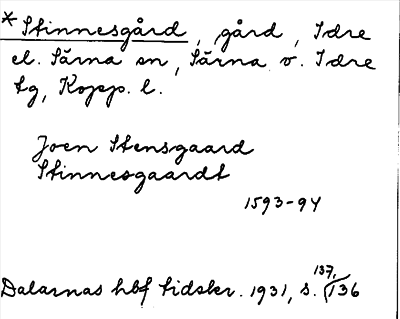 *Stinnesgård, gård, Idre
el. Särna sn, Särna o. Idre
tg, Kopp. l.
Joen Stensgaard
Stinnesgaardt
1593-94
137,
Dalarnas hbf tidskr. 1931, s. 136